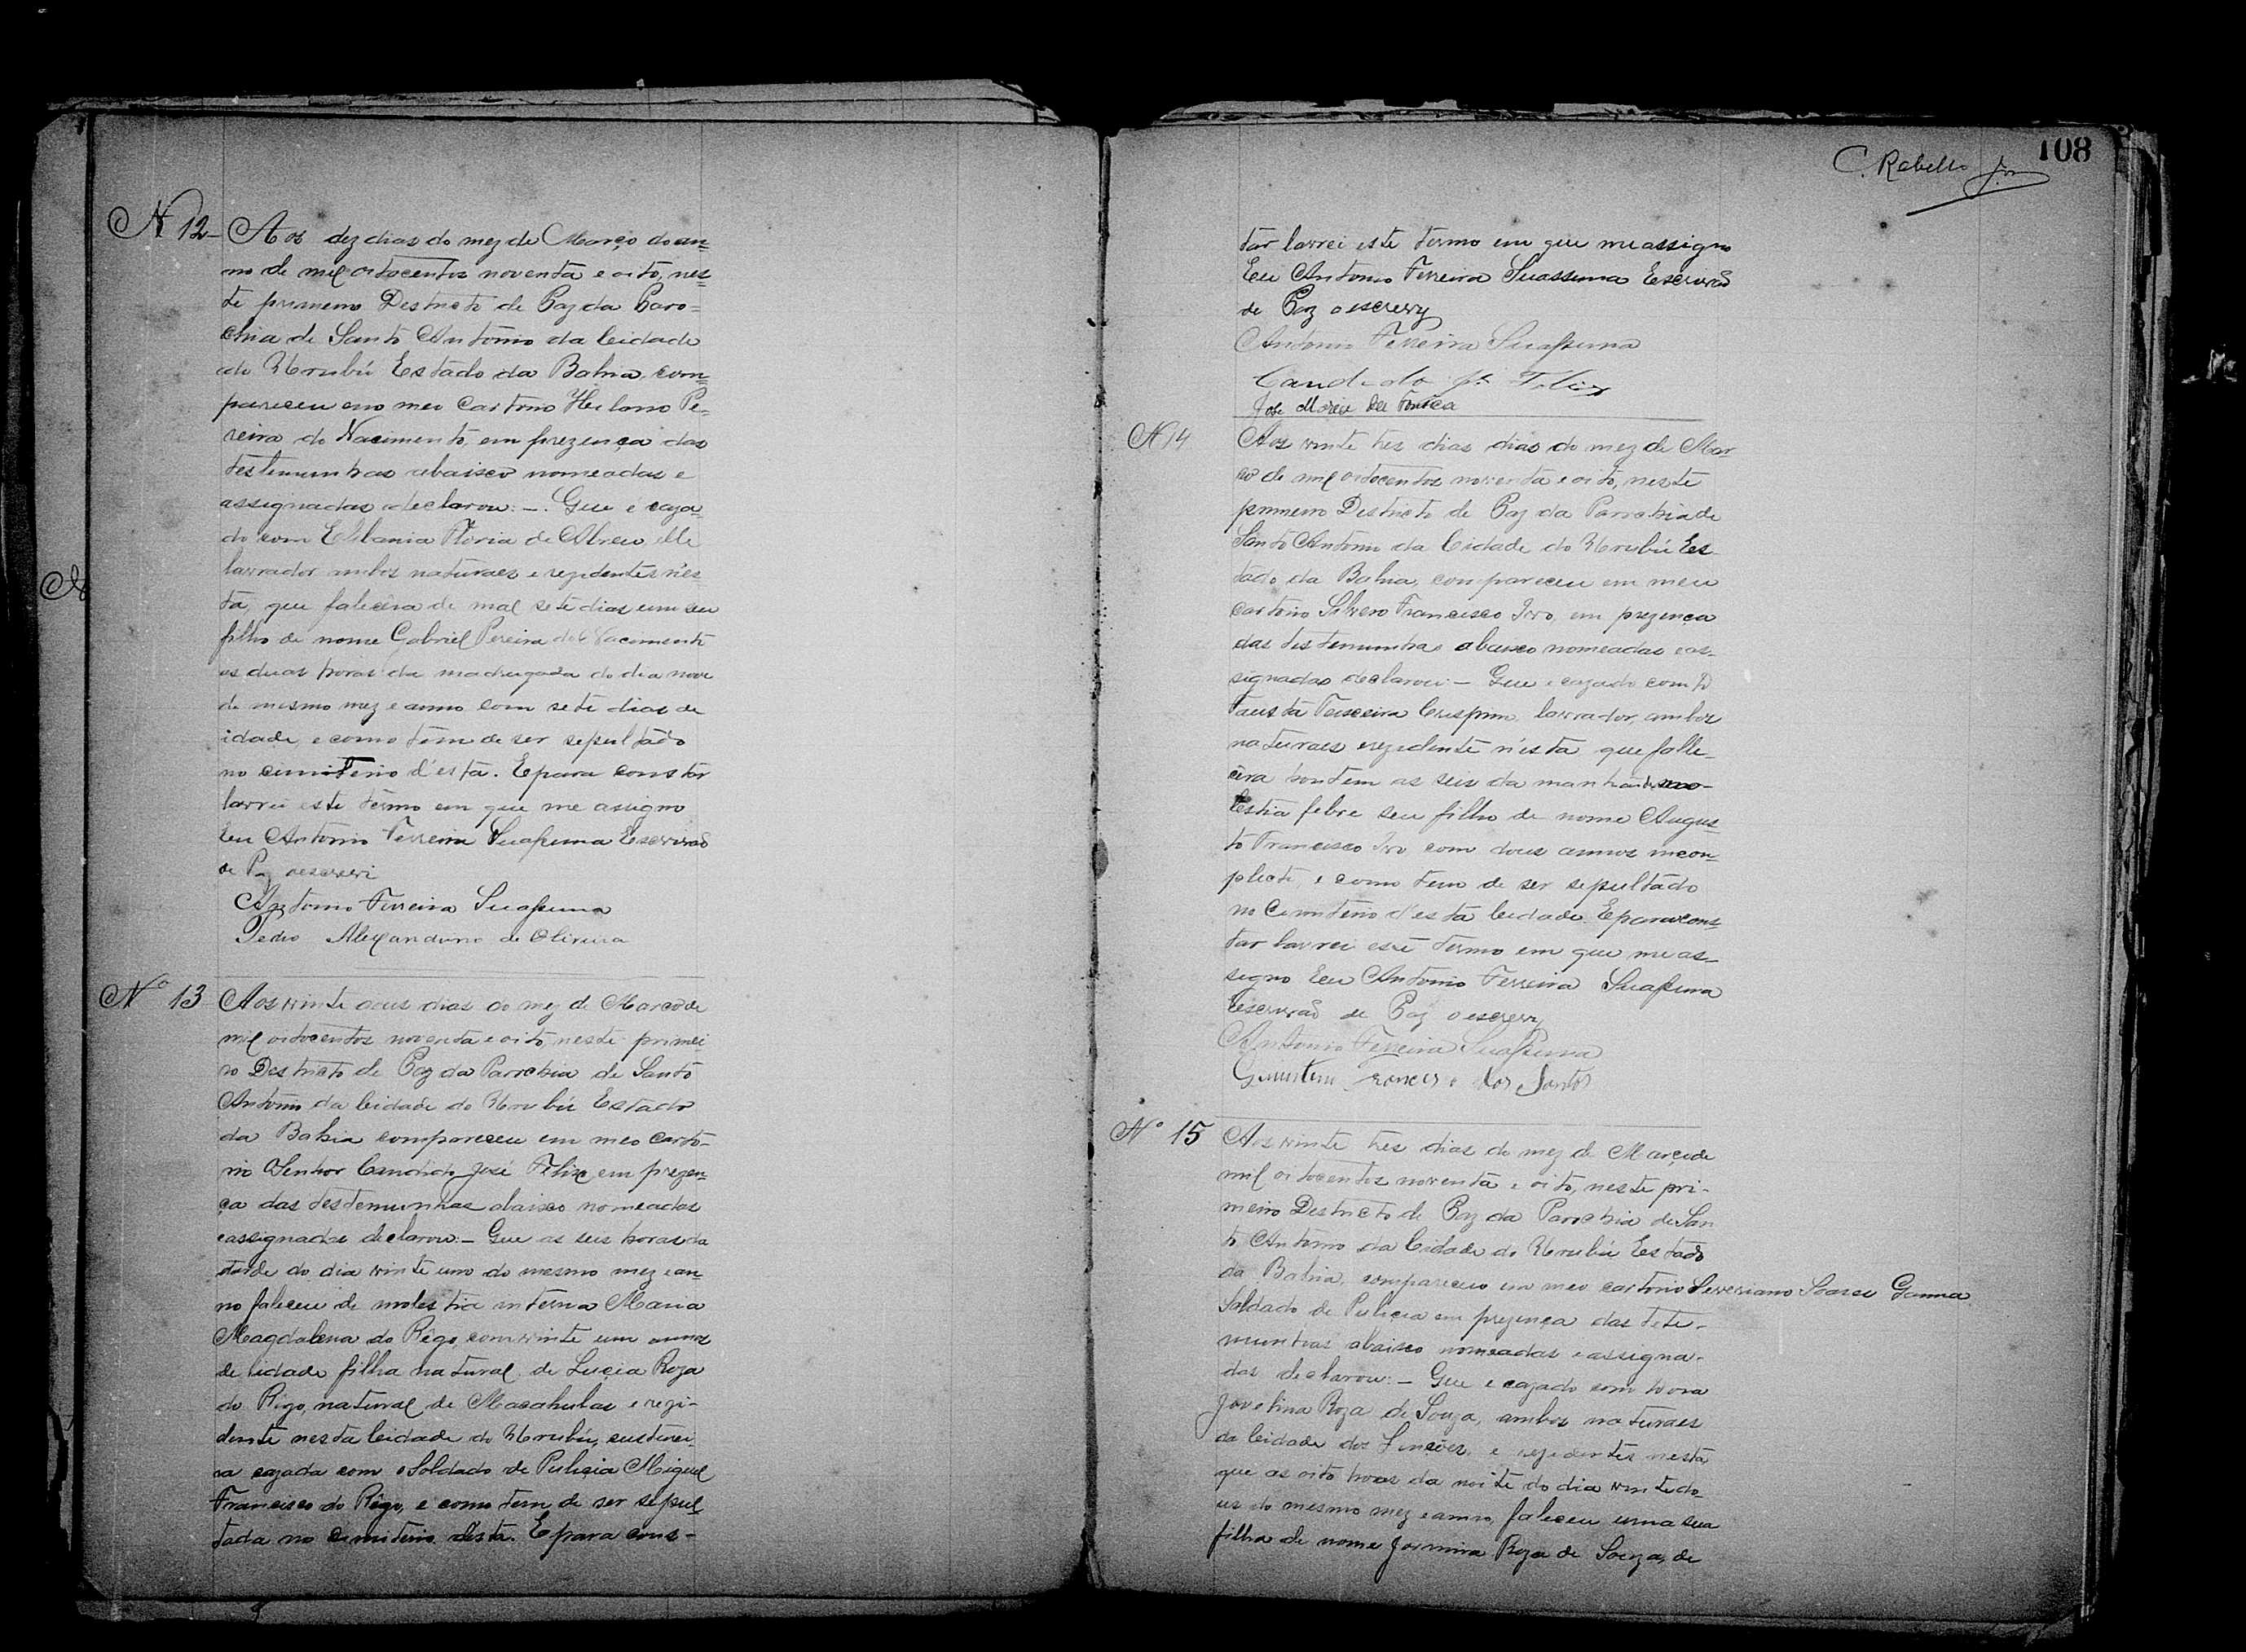 N 12 - Aos dez dias do mez de Março do an=
no de mil oitocentos noventa e oito, nes=
te primeiro Destricto de Paz da Paro=
chia de Santo Antonio da Cidade
do Urubú Estado da Bahia, com=
pareceu em meu Cartorio Pe=
reira do Nacimento, em prezença das
testemunhas abaixo nomeadas e
assignadas declarou: -. Que é caza=
do com de Abreu, elle
lavrador ambos naturaes e rezidentes n'es=
ta, que falecêra de mal sete dias um seu
filho de nome Gabriel Pereira do Nacimento
as duas horas da madrugada do dia nove
do mesmo mez e anno com sete dias de
idade, e como tem de ser sepultado
no cimiterio d'esta. E para constar
lavrei este termo em que me assigno
Eu Antonio Ferreira Suassuna Escrivaõ
de Paz o escrevi
Antonio Ferreira Suassuna
Pedro Alexandrino de Oliveira
Nº 13 Aos vinte dous dias do mez de Março de
mil oitocentos noventa e oito, neste primei=
ro Destricto de Paz da Parochia de Santo
Antonio da Cidade do Urubú Estado
da Bahia compareceu em meo carto=
rio Senhor Candido José Felix, em prezen=
ça das testemunhas abaixo nomeadas
e assignadas declarou: - Que as seis horas da
tarde do dia vinte um do mesmo mez e an=
no faleceu de molestia interna Maria
Magdalena do Rêgo, com vinte um annos
de idade filha natural de Lucia Roza
do Rêgo, natural de Macahubas e rezi-
dente nesta Cidade do Urubú,
ra cazada com o Soldado de Pulicia Miguel
Francisco do Rêgo, e como tem de ser sepul=
tada no cimiterio d'esta. E para cons-
108
C. Rabello Jor
tar lavrei este termo em que me assigno
Eeu Antonio Ferreira Suassuna Escrivaõ
de Paz o escrevy
Antonio Ferreira Suassuna
Candido Je Felix
José Maria da Fonseca
N 14 Aos vinte tres dias dias do mez de Mar=
ço de mil oitocentos noventa e oito, neste
primeiro Destricto de Paz da Parochia de
Santo Antonio da Cidade do Urubú Es=
tado da Bahia, compareceu em meu
cartorio Silverio Francisco Ivo, em prezença
das testemunhas abaixo nomeadas e as=
signadas declarou: - Que e cazado com D
Fausta Teixeira Crispim, lavrador, ambos
naturaes e rezidente n'esta que falle=
cêra hontem as seis da manhaã de mo-
lestia febre seu filho de nome Augus=
to Francisco Ivo com dous annos incon=
pleto, e como tem de ser sepultado
no Cimiterio d'esta Cidade. E para cons=
tar lavrei este termo em que me as=
signo Eeu Antonio Ferreira Suassuna
Escrivaõ de Paz o escrevy
Antonio Ferreira Suassuna
Francisco dos Santos
Nº 15 Aos vinte tres dias do mez de Março de
mil oitocentos noventa e oito, neste pri-
meiro Destricto de Paz da Parochia de San
to Antonio da Cidade do Urubú Estado
da Bahia, compareceu em meu cartorio Severiano Soares Gamma
Soldado de Pulicia em prezença das teste-
munhas abaixo nomeadas e assigna-
das declarou: - Que e cazado com
Jovelina Roza de Souza, ambos naturaes
da Cidade dos Lençóes, e rezidentes nesta
que as oito horas da noite do dia vinte do-
us do mesmo mez e anno, faleceu uma sua
filha de nome Roza de Souza, de